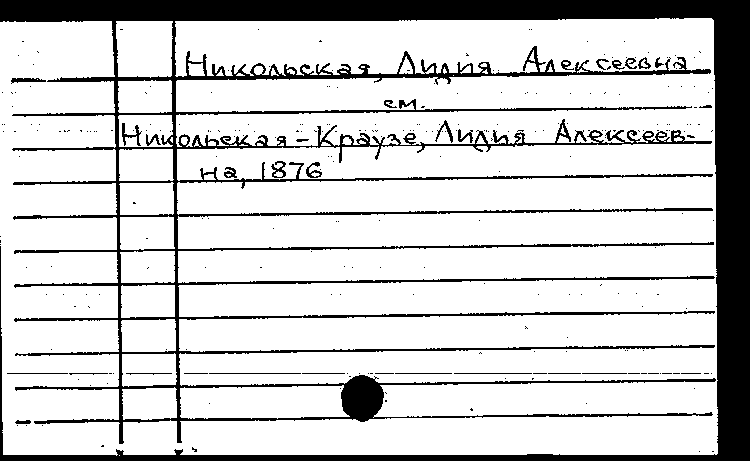 Никольская, Лидия Алексеевна
см.
Никольская-Краузе, Лидия Алексеев-
на, 1876